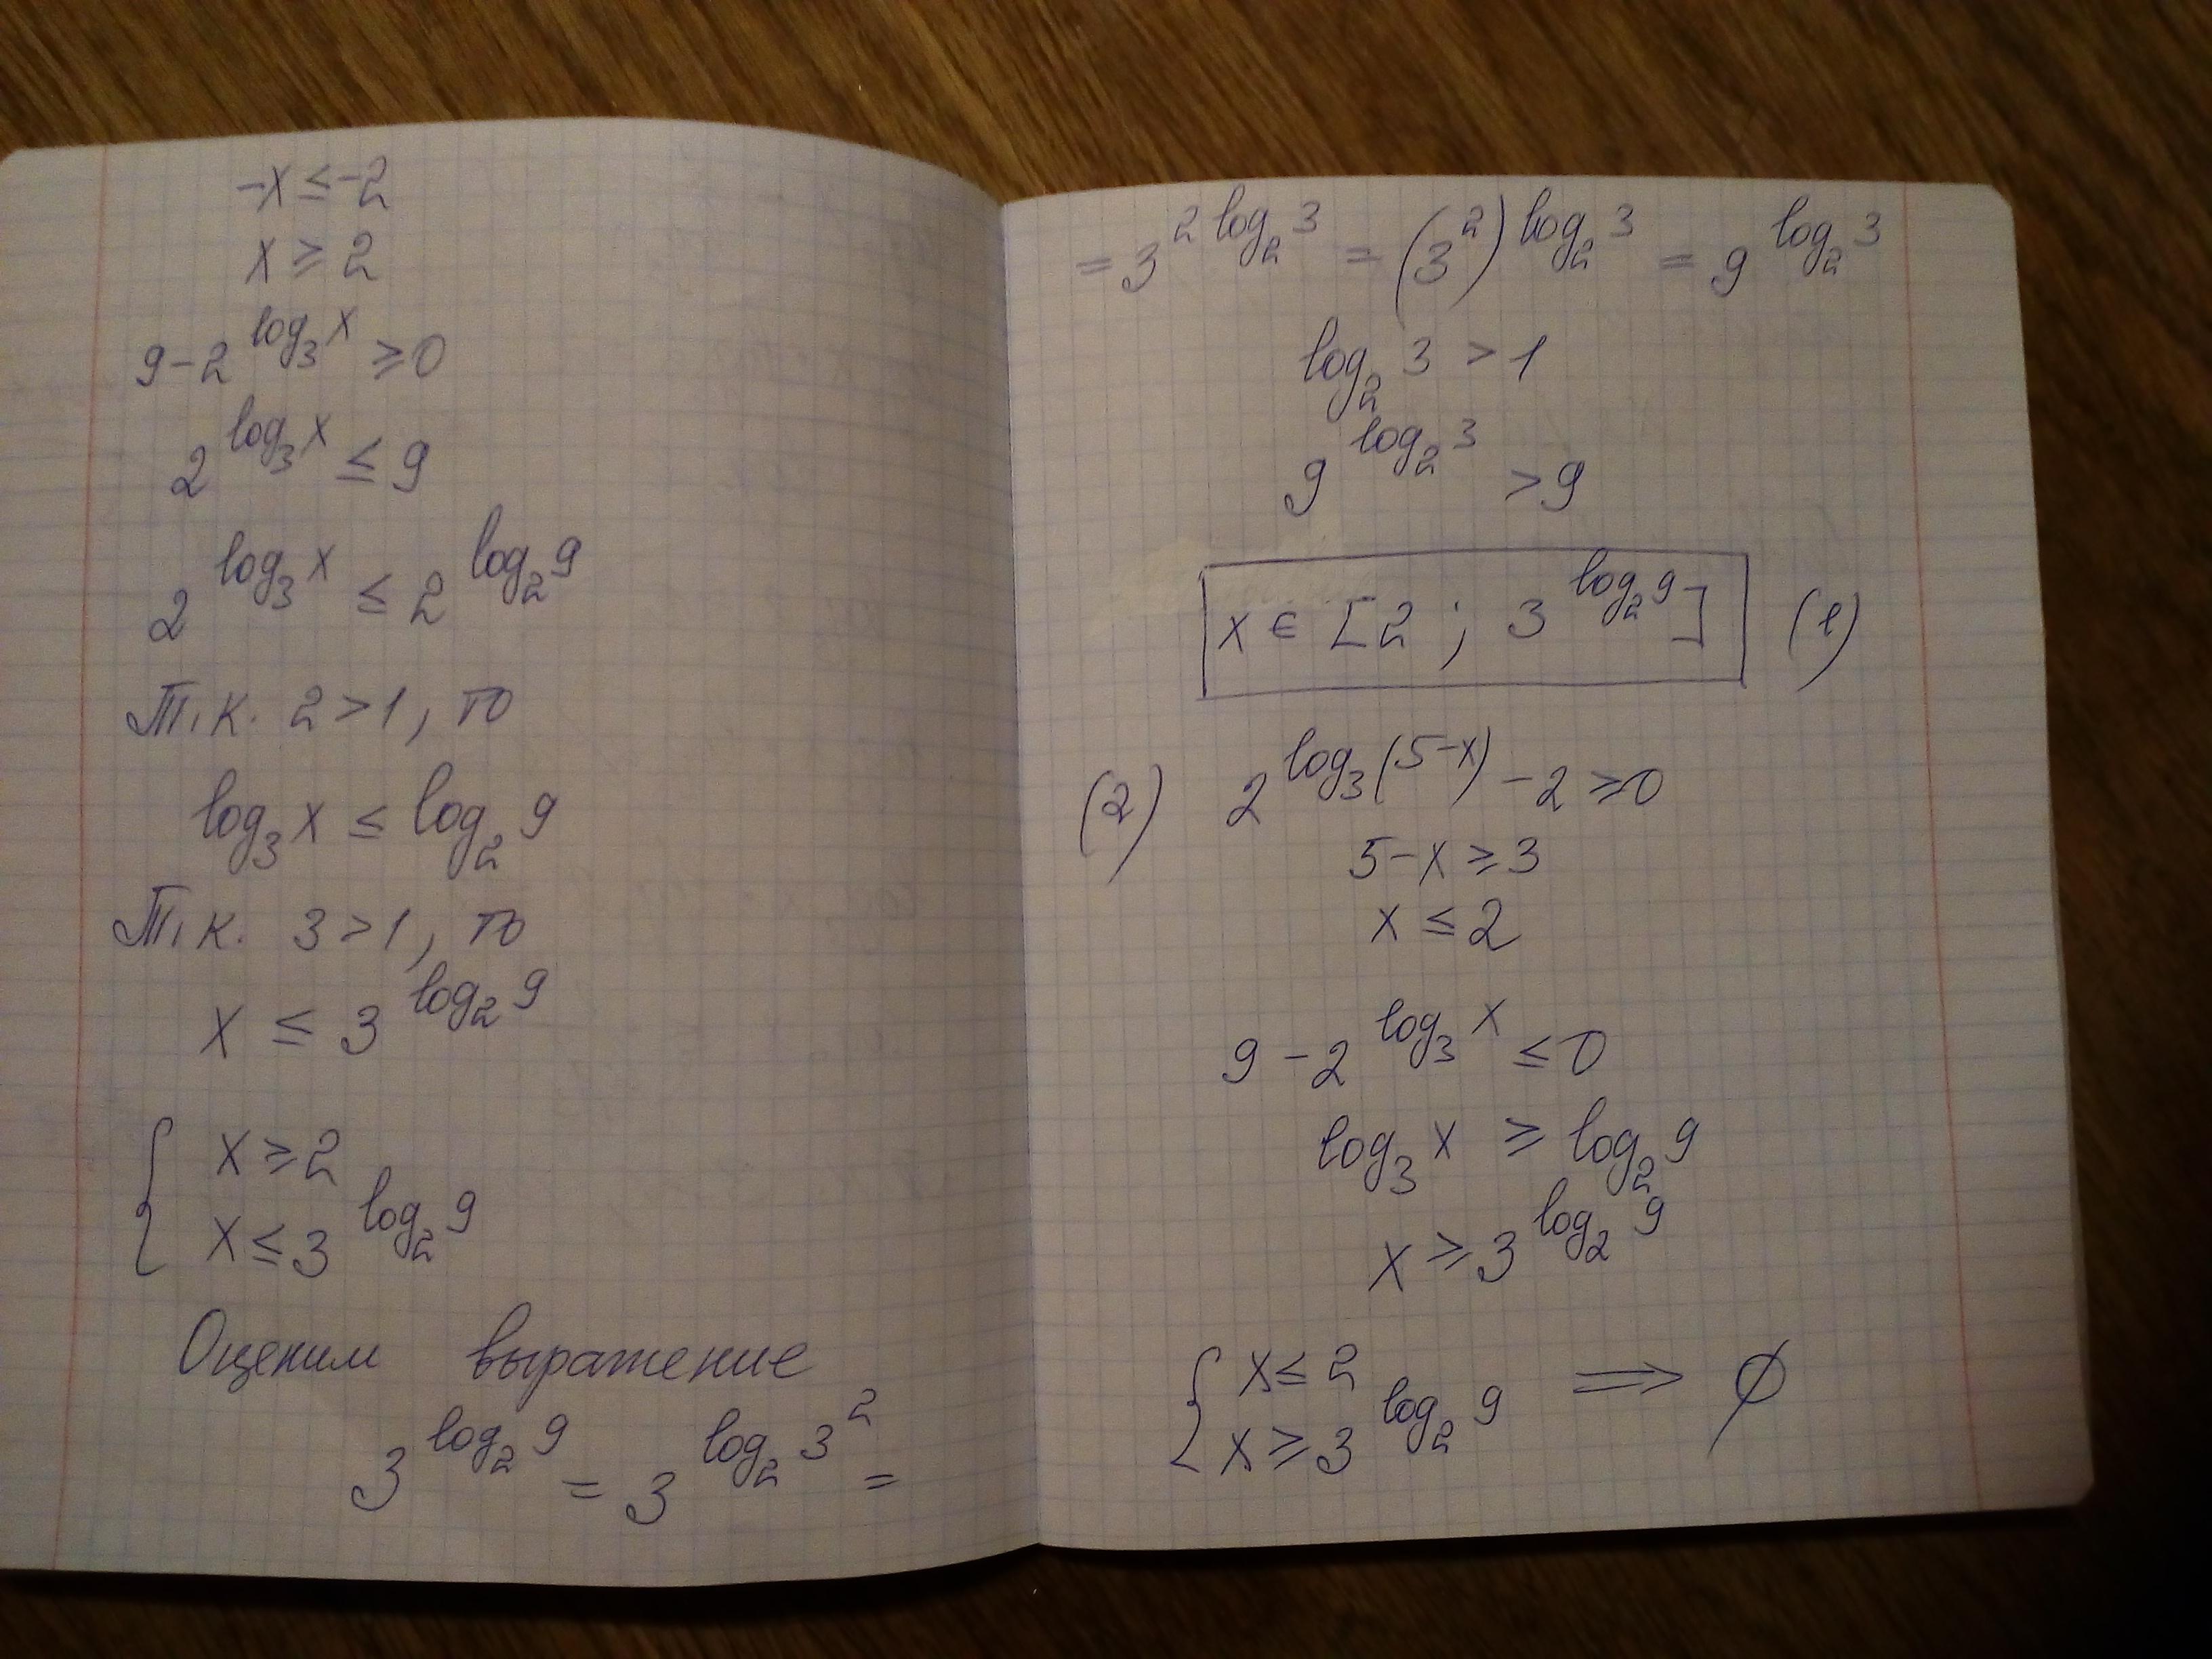 -x ≤ -2
x ≥ 2
9 - 2^{log₃ x} ≥ 0
2^{log₃ x} ≤ 9
2^{log₃ x} ≤ 2^{log₂ 9}
Т.к. 2 > 1, то
log₃ x ≤ log₂ 9
Т.к. 3 > 1, то
x ≤ 3^{log₂ 9}
{ x ≥ 2
x ≤ 3^{log₂ 9}
Оценим выражение
3^{log₂ 9} = 3^{log₂ 3²} =
= 3^{2 log₂ 3} = (3²)^{log₂ 3} = 9^{log₂ 3}
log₂ 3 > 1
9^{log₂ 3} > 9
x ∈ [2 ; 3^{log₂ 9}] (1)
(2) 2^{log₃(5-x)} - 2 ≥ 0
5 - x ≥ 3
x ≤ 2
9 - 2^{log₃ x} ≤ 0
log₃ x ≥ log₂ 9
x ≥ 3^{log₂ 9}
{ x ≤ 2 ⟹ ∅
x ≥ 3^{log₂ 9}